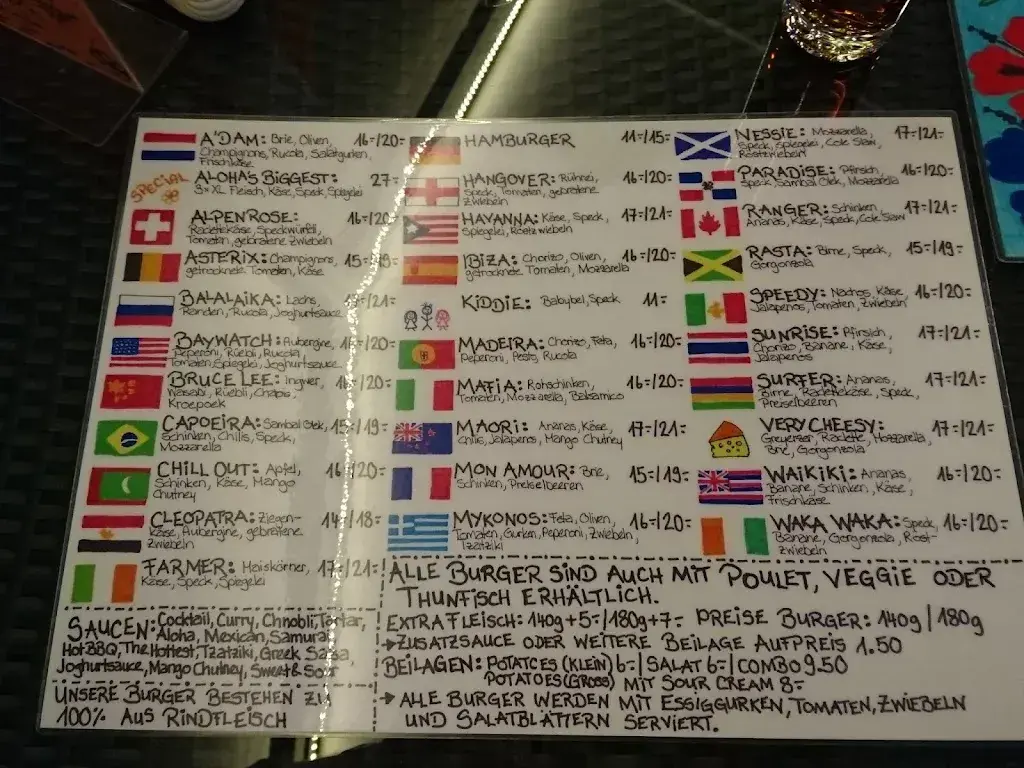 A'DAM: Brie, Oliven, 16=/20=
Champignons, Rucola, Salatgurken,
Frischkäse
SPECIAL
ALOHA'S BIGGEST: 27=
3x XL Fleisch, Käse, Speck, Spiegelei
ALPENROSE: 16=/20=
Raclettekäse, Speckwürfli,
Tomaten, gebratene Zwiebeln
ASTERIX: Champignons, 15=/19=
getrocknete Tomaten, Käse
BALALAIKA: Lachs, /21=
Randen, Rucola, Joghurtsauce
BAYWATCH: Aubergine, 16=/20=
Peperoni, Rüebli, Rucola,
Tomaten, Spiegelei, Joghurtsauce
BRUCE LEE: Ingwer, 16=/20=
Wasabi, Rüebli, Chabis,
Kroepoek
CAPOEIRA: Sambal Olek, 15=/19=
Schinken, Chilis, Speck,
Mozzarella
CHILL OUT: Apfel, 16=/20=
Schinken, Käse, Mango
Chutney
CLEOPATRA: Ziegen- 14=/18=
käse, Aubergine, gebratene
Zwiebeln
FARMER: Maiskörner, 17=/21=
Käse, Speck, Spiegelei
SAUCEN: Cocktail, Curry, Chnobli, Tartar,
Aloha, Mexican, Samurai
Hot BBQ, The Hottest, Tzatziki, Greek Salsa,
Joghurtsauce, Mango Chutney, Sweet & Sour
UNSERE BURGER BESTEHEN ZU
100% AUS RINDFLEISCH
HAMBURGER 11=/15=
HANGOVER: Rührei, 16=/20=
Speck, Tomaten, gebratene
Zwiebeln
HAVANNA: Käse, Speck, 17=/21=
Spiegelei, Röstzwiebeln
IBIZA: Chorizo, Oliven, 16=/20=
getrocknete Tomaten, Mozzarella
KIDDIE: Babybel, Speck 11=
MADEIRA: Chorizo, Feta, 16=/20=
Peperoni, Pesto, Rucola
MAFIA: Rohschinken, 16=/20=
Tomaten, Mozzarella, Balsamico
MAORI: Ananas, Käse, 17=/21=
Chilis, Jalapenos, Mango Chutney
MON AMOUR: Brie, 15=/19=
Schinken, Preiselbeeren
MYKONOS: Feta, Oliven, 16=/20=
Tomaten, Gurken, Peperoni, Zwiebeln,
Tzatziki
NESSIE: Mozzarella, 17=/21=
Speck, Spiegelei, Cole Slaw,
Röstzwiebeln
PARADISE: Pfirsich, 16=/20=
Speck, Sambal Olek, Mozzarella
RANGER: Schinken, 17=/21=
Ananas, Käse, Speck, Cole Slaw
RASTA: Birne, Speck, 15=/19=
Gorgonzola
SPEEDY: Nachos, Käse, 16=/20=
Jalapenos, Tomaten, Zwiebeln
SUNRISE: Pfirsich, 17=/21=
Chorizo, Banane, Käse,
Jalapenos
SURFER: Ananas, 17=/21=
Birne, Raclettekäse, Speck,
Preiselbeeren
VERY CHEESY: 17=/21=
Greyerzer, Raclette, Mozzarella,
Brie, Gorgonzola
WAIKIKI: Ananas 16=/20=
Banane, Schinken, Käse,
Frischkäse
WAKA WAKA: Speck, 16=/20=
Banane, Gorgonzola, Röst-
zwiebeln
ALLE BURGER SIND AUCH MIT POULET, VEGGIE ODER
THUNFISCH ERHÄLTLICH.
EXTRA FLEISCH: 140g+5=/180g+7= PREISE BURGER: 140g/180g
→ZUSATZSAUCE ODER WEITERE BEILAGE AUFPREIS 1.50
BEILAGEN: POTATOES (KLEIN) 6=/SALAT 6=/COMBO 9.50
POTATOES (GROSS) MIT SOUR CREAM 8=
→ ALLE BURGER WERDEN MIT ESSIGGURKEN, TOMATEN, ZWIEBELN
UND SALATBLÄTTERN SERVIERT.